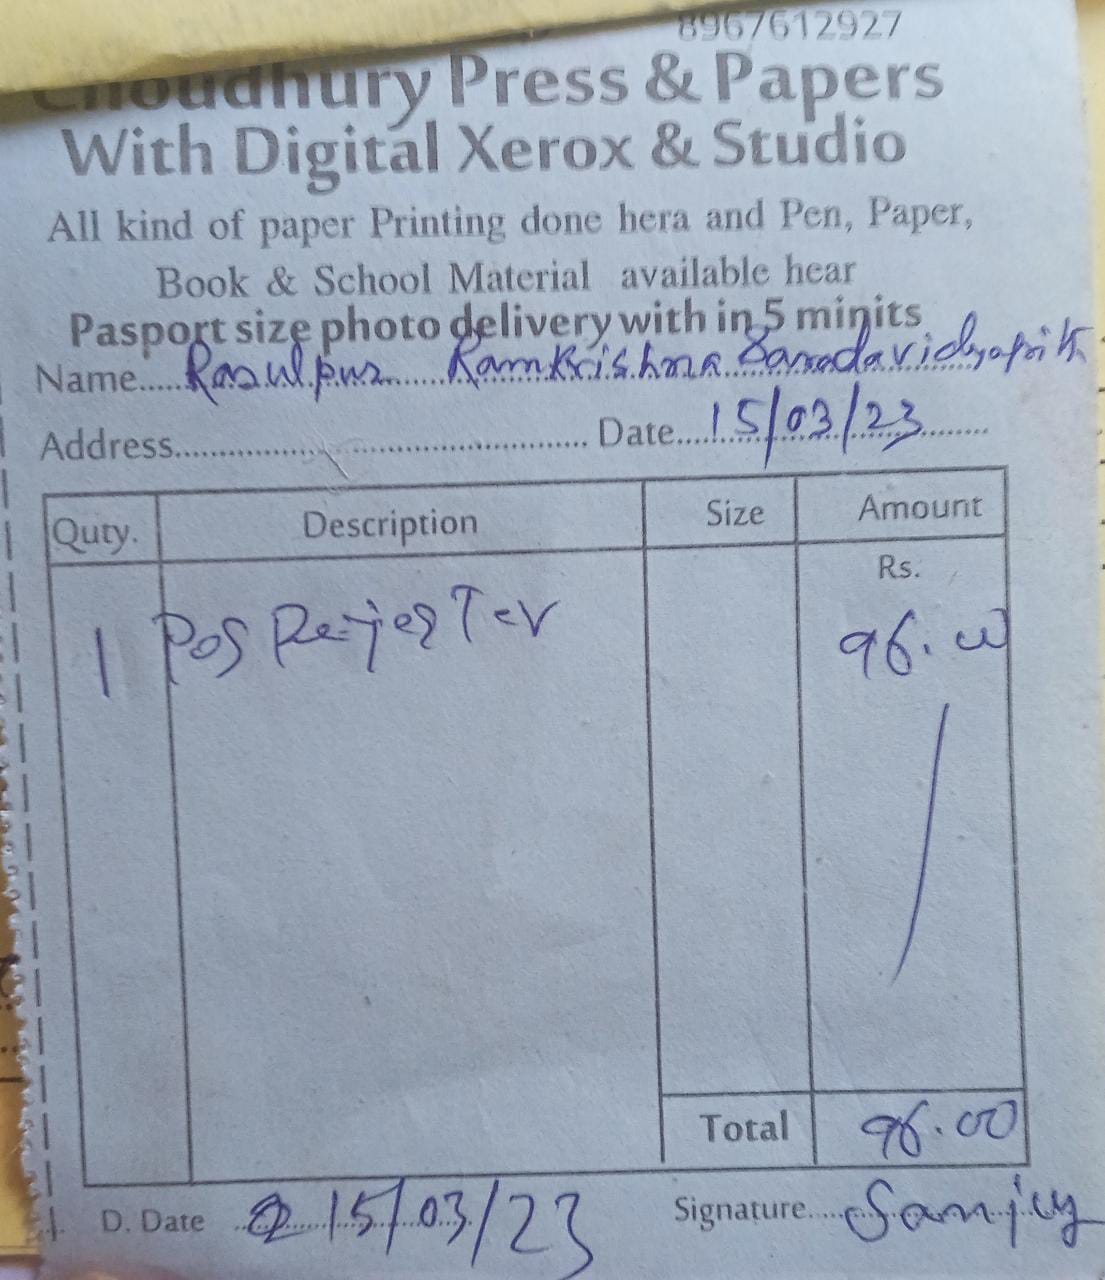 8967612927
Choudhury Press & Papers
With Digital Xerox & Studio
All kind of paper Printing done hera and Pen, Paper,
Book & School Material available hear
Pasport size photo delivery with in 5 minits
Name..... Rasulpur Ramkrishna Sarada vidyapith
Address.......................................... Date.... 15/03/23
Quty. Description Size Amount
Rs.
1 Pos Rejester 96.00
Total 96.00
D. Date 15/03/23 Signature..... Sanjoy